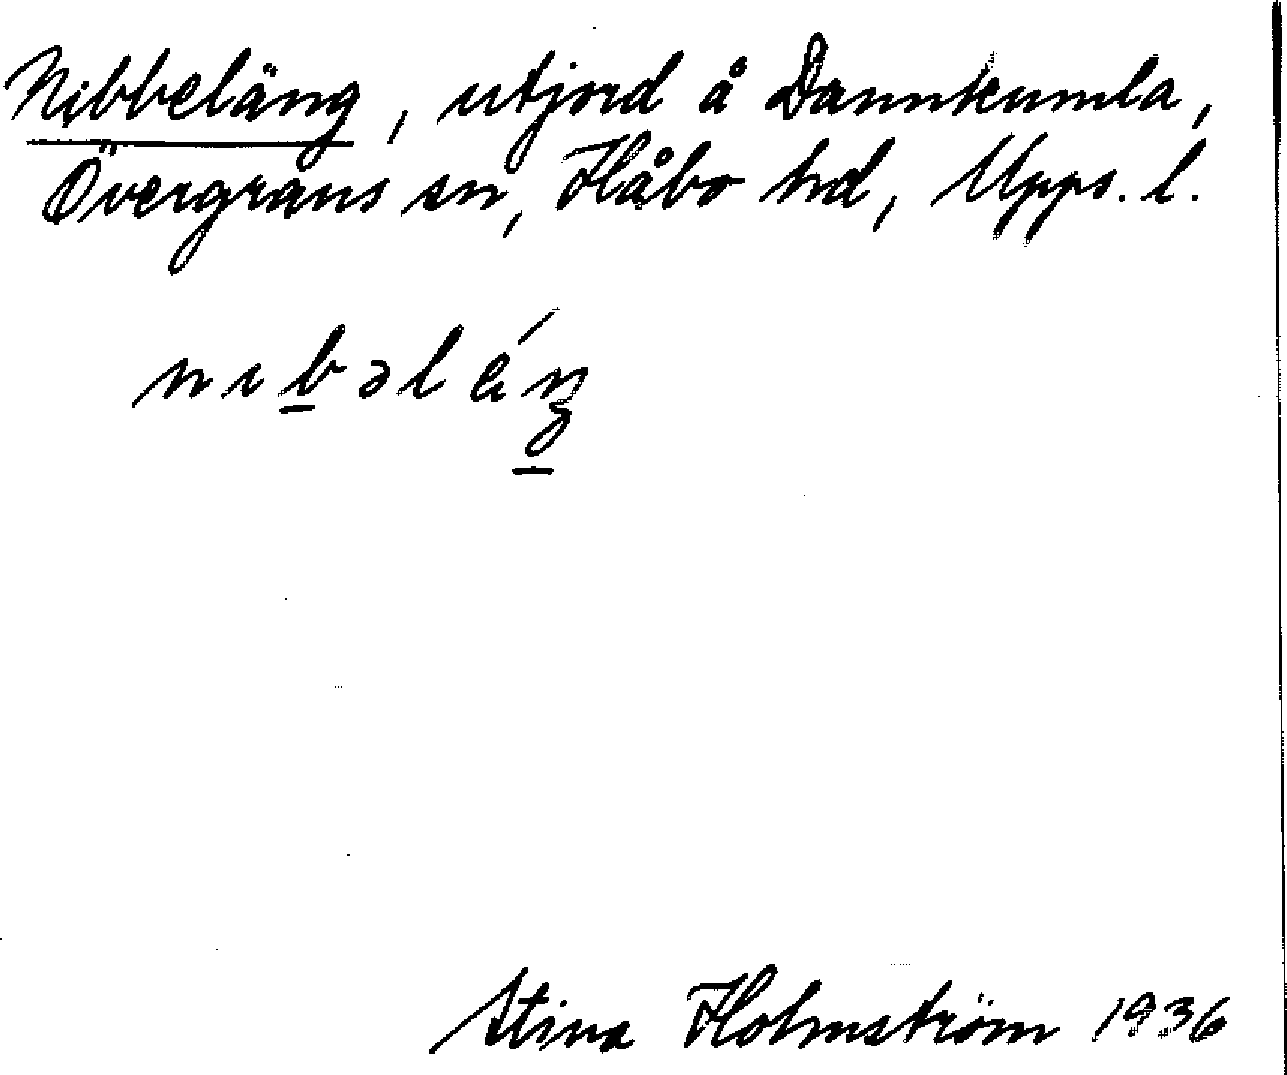 Nibbeläng, utjord å Dannkumla,
Övergrans sn, Håbo hd, Upps. l.
nıbəlǽŋ
Stina Holmström 1936